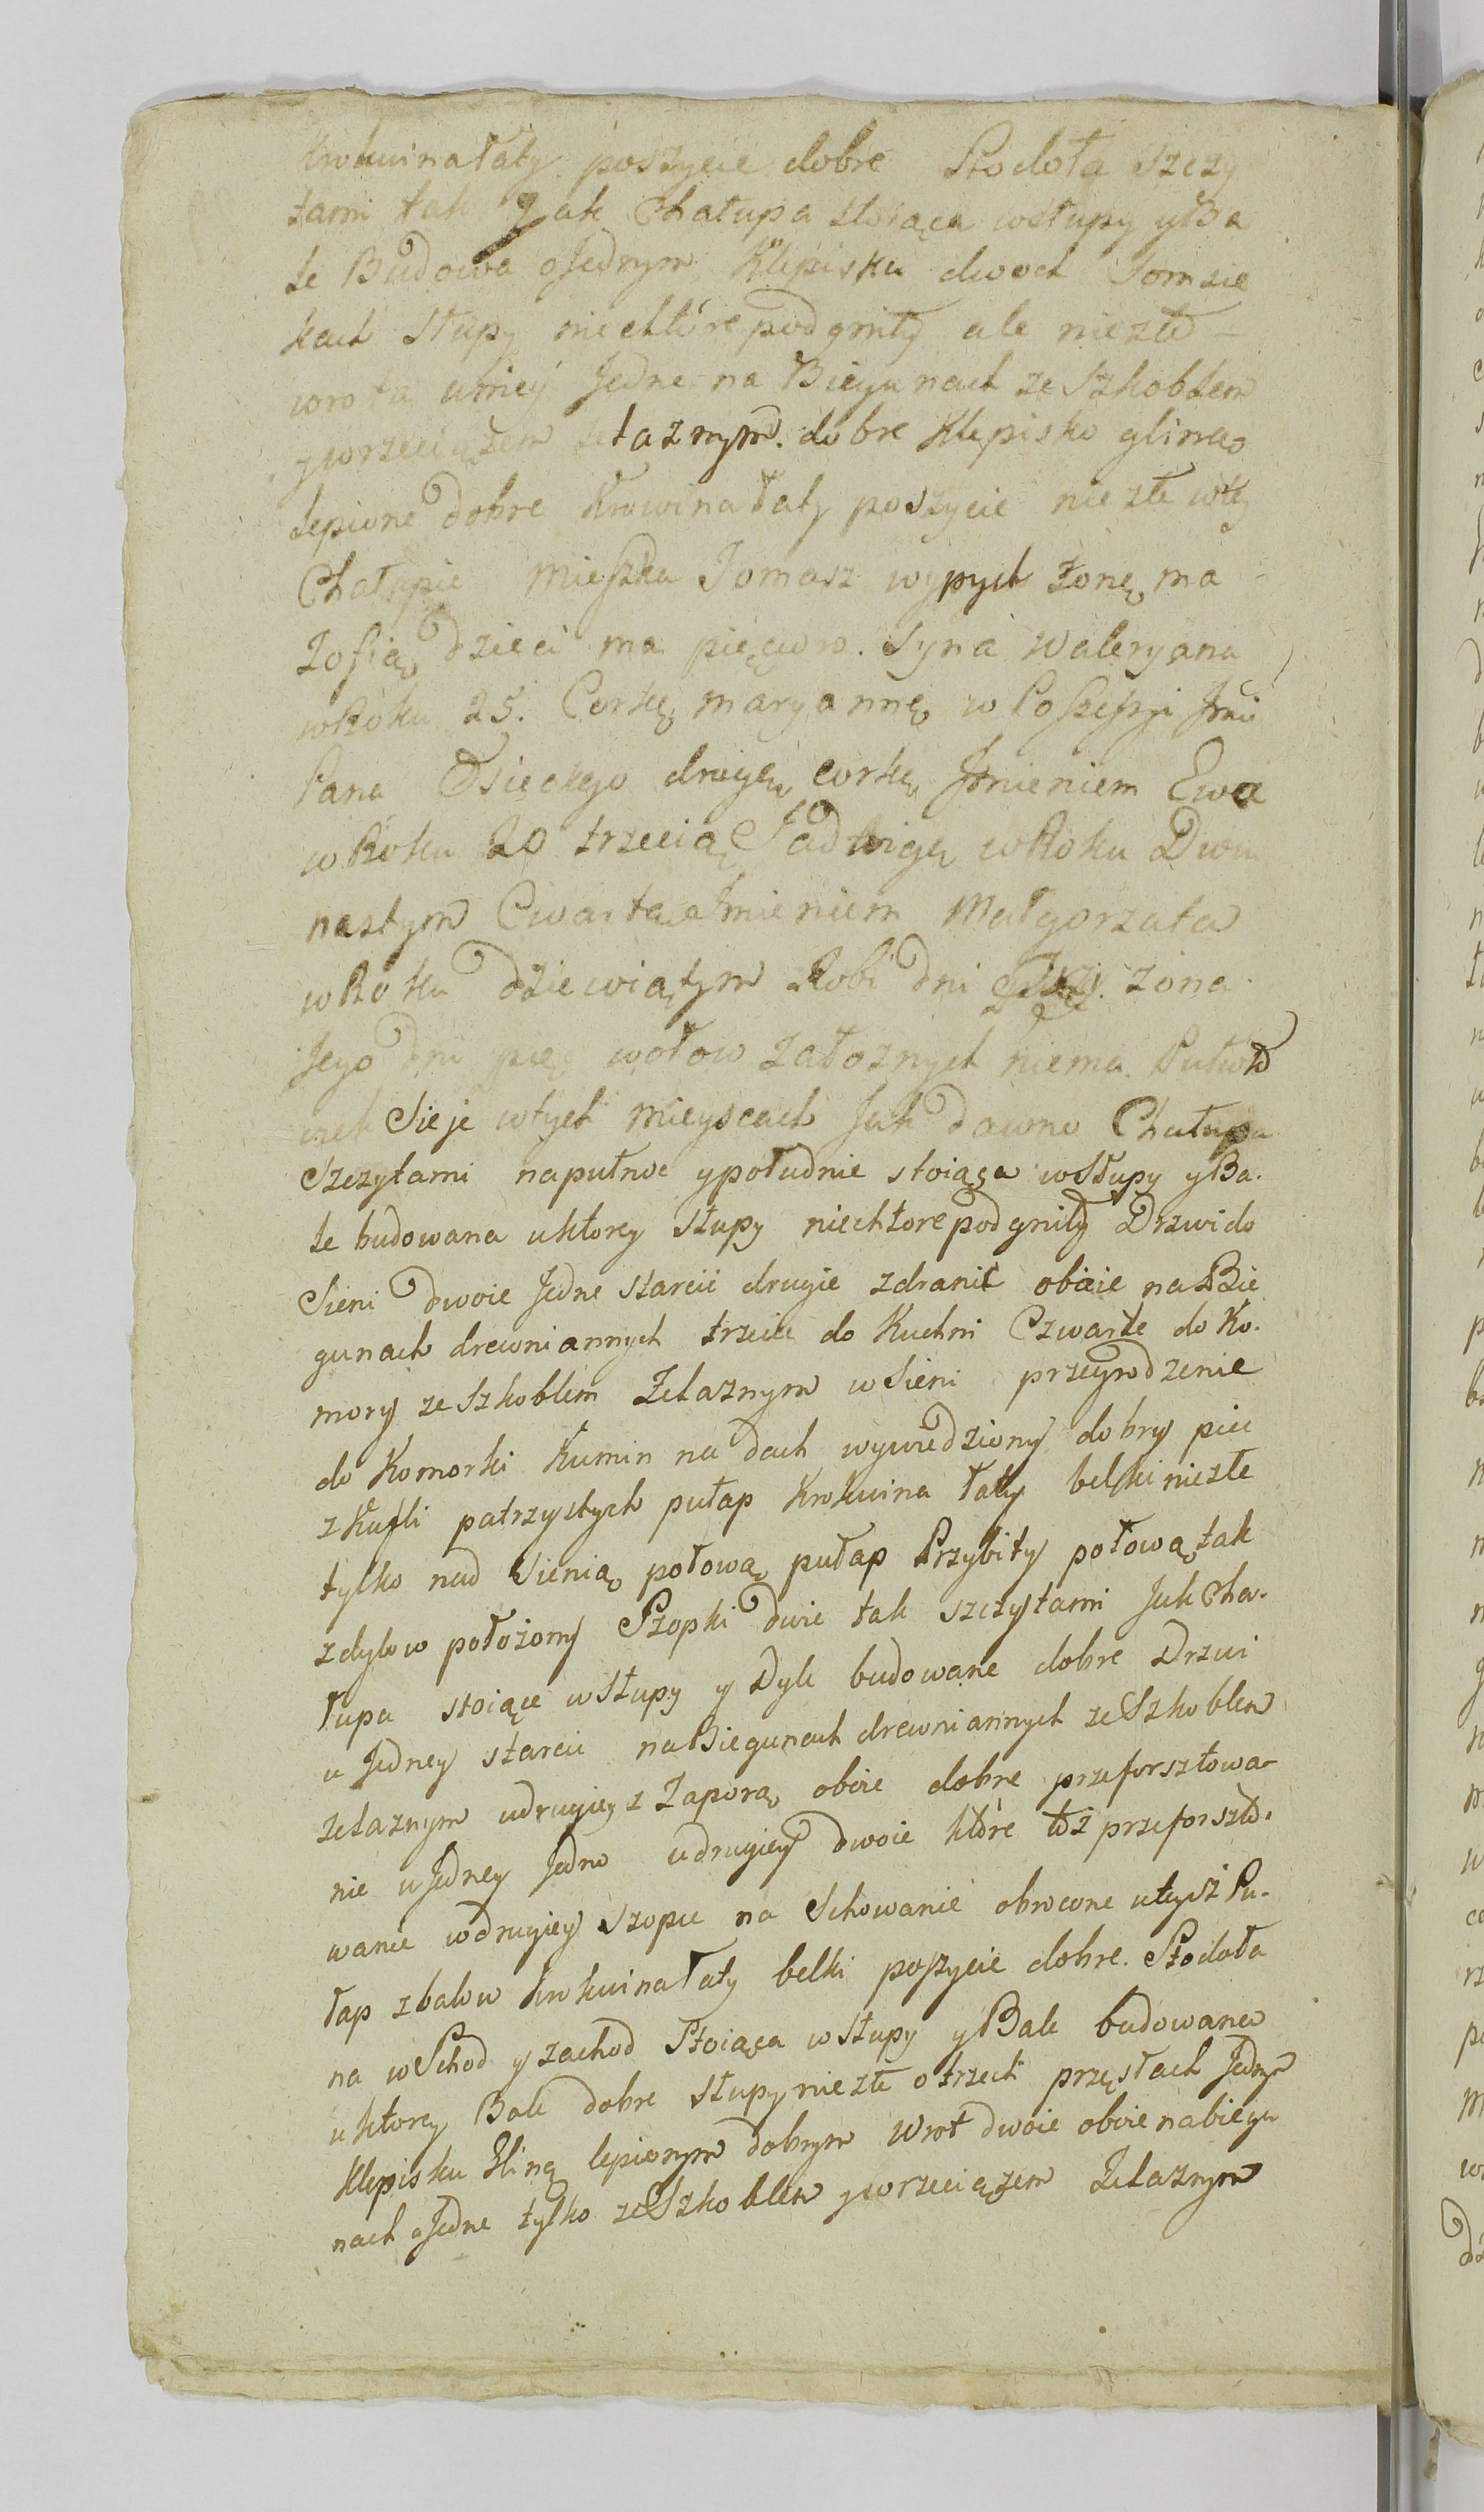 krowina łaty poszycie dobre Stodoła szczy
tami tak Jak Chałupa stoiąca w słupy y Ba
le Budowa o Jednym Klepisku dwoch Somsie
kach Słupy niechtóre podgniły ale niezłe
wrota u niey Jedne na Biegunach ze Szkoblem
y wrzeciążem żelaznym. dobre Klepisko gliną
lepione dobre Krowina łaty poszycie niezłe w tey
Chałupie Mieszka Tomasz wypych żonę ma
Zofią dzieci ma pięcioro. Syna Waleryana
w Roku 25. Corkę maryannę w Possessyi Jmci
Pana Osieckego drugę corkę Jmieniem Ewa
w Roku 20 trzecią Jadwigę w Roku Dwu
nastym Cwarta Jmieniem Małgorzata
w Roku dziewiątym Robi dni żona
Jego dni pięć wołow załoznych niema. Putwo
rek Sieje w tych mieyscach Jak dawno Chałupa
Szczytami na putnoc y południe stoiąca w Słupy y Ba.
le budowana u ktorey Słupy niechtore podgniły Drzwi do
Sieni dwoie Jedne starcie drugie zdranic oboie na Bie
gunach drewniannych trzecie do Kuchni Czwarte do Ko.
mory ze Szkoblem Zelaznym w Sieni przegrodzenie
do Komorki Kumin na dach wywiedziony dobry piec
z Kafli patrzystych pułap Krokwina łaty belki niezłe
tylko nad Sienią połową pułap Przybity połową tak
z dylow położony Szopki dwie tak szczytami Jak Cha.
łupa stoiące w Słupy y Dyle budowane dobre Drzwi
u Jedney starcie na Biegunach drewniannych ze Szkoblem
zelaznym u drugiey z Zaporą oboie dobre przeforsztowa-
nie u Jedney Jedno u drugiey dwoie które też przeforszto.
wanie w drugiey Szopce na Schowanie obrocone u teysz Pu.
łap z balow krokwina łaty belki poszycie dobre. Stodoła
na wSchod y zachod Stoiąca w Słupy y Bale budowana
u ktorey Bale dobre słupy niezłe o trzech przęsłach Jednym
Klepisku Gliną lepionym dobrym Wrot dwoie oboie na biegu
nach a Jedne tylko ze Szkoblem y wrzeciążem Zelaznym